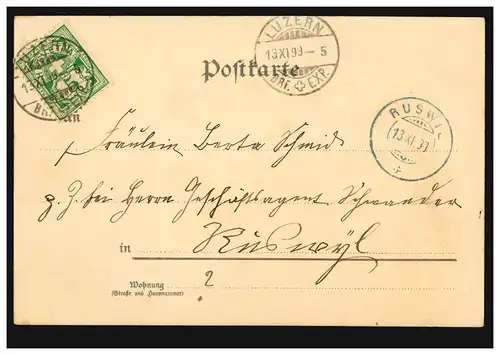 LUZERN
13.XI.99-5
BRF. EXP.
Postkarte
RUSWIL
13.XI.99
Fräulein Berta Schmid
z. Z. bei Herrn Geschäftsagent Schwander
in Ruswyl
Wohnung 2
(Straße und Hausnummer)